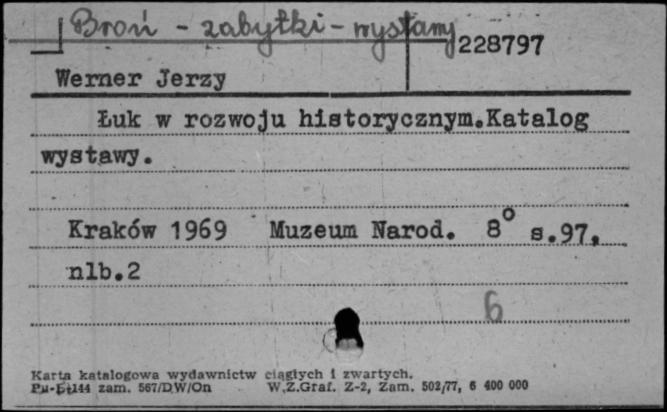 Broń - zabytki - wystawy
228797
Werner Jerzy
Łuk w rozwoju historycznym.Katalog
wystawy.
Kraków 1969 Muzeum Narod. 8° s.97,
nlb.2
6
Karta katalogowa wydawnictw ciągłych i zwartych.
Pu-Et144 zam. 567/DW/On W.Z.Graf. Z-2, Zam. 502/77, 6 400 000